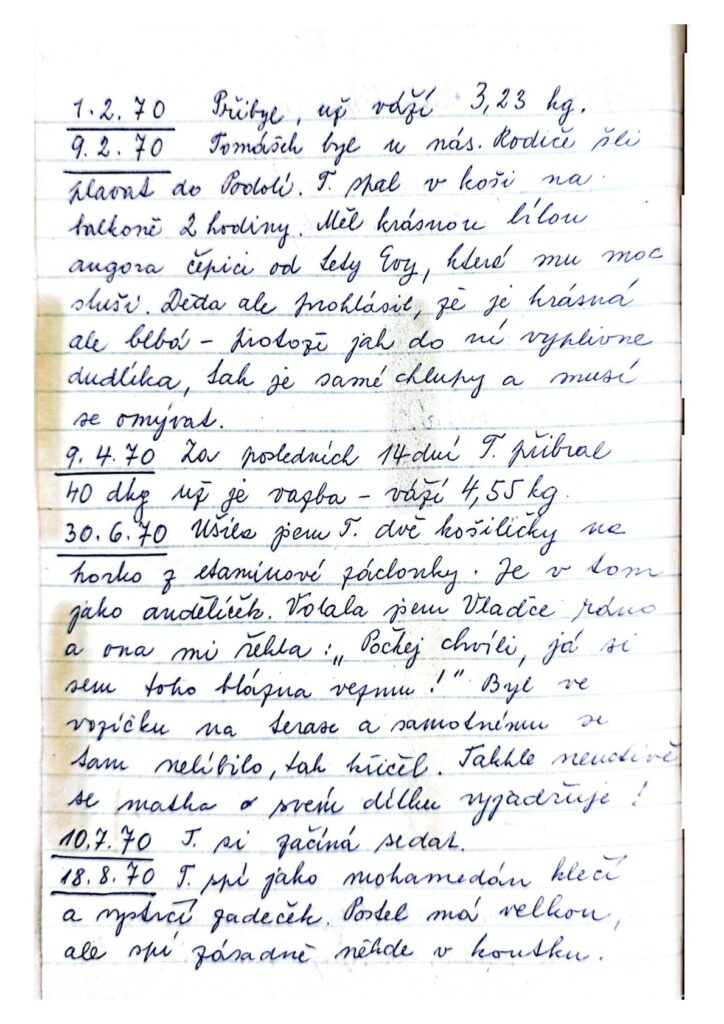 1.2.70 Přibyl, už váží 3,23 kg.
9.2.70 Tomášek byl u nás. Rodiče šli
plavat do Podolí. T. spal v koši na
balkoně 2 hodiny. Měl krásnou bílou
angora čepici od tety Evy, která mu moc
sluší. Děda ale prohlásil, že je krásná
ale blbá – protože jak do ní vyplivne
dudlíka, tak je samé chlupy a musí
se omývat.
9.4.70 Za posledních 14 dní T. přibral
40 dkg už je vazba – váží 4,55 kg.
30.6.70 Ušila jsem T. dvě košiličky na
horko z etamínové záclonky. Je v tom
jako andělíček. Volala jsem Vladce ráno
a ona mi řekla: „Počkej chvíli, já si
sem toho blázna vezmu!" Byl ve
vozíčku na terase a samotnému se
tam nelíbilo, tak křičel. Takhle neuctivě
se matka o svém dítku vyjadřuje!
10.7.70 T. si začíná sedat.
18.8.70 T. spí jako mohamedán klečí
a vystrčí zadeček. Postel má velkou,
ale spí zásadně někde v koutku.